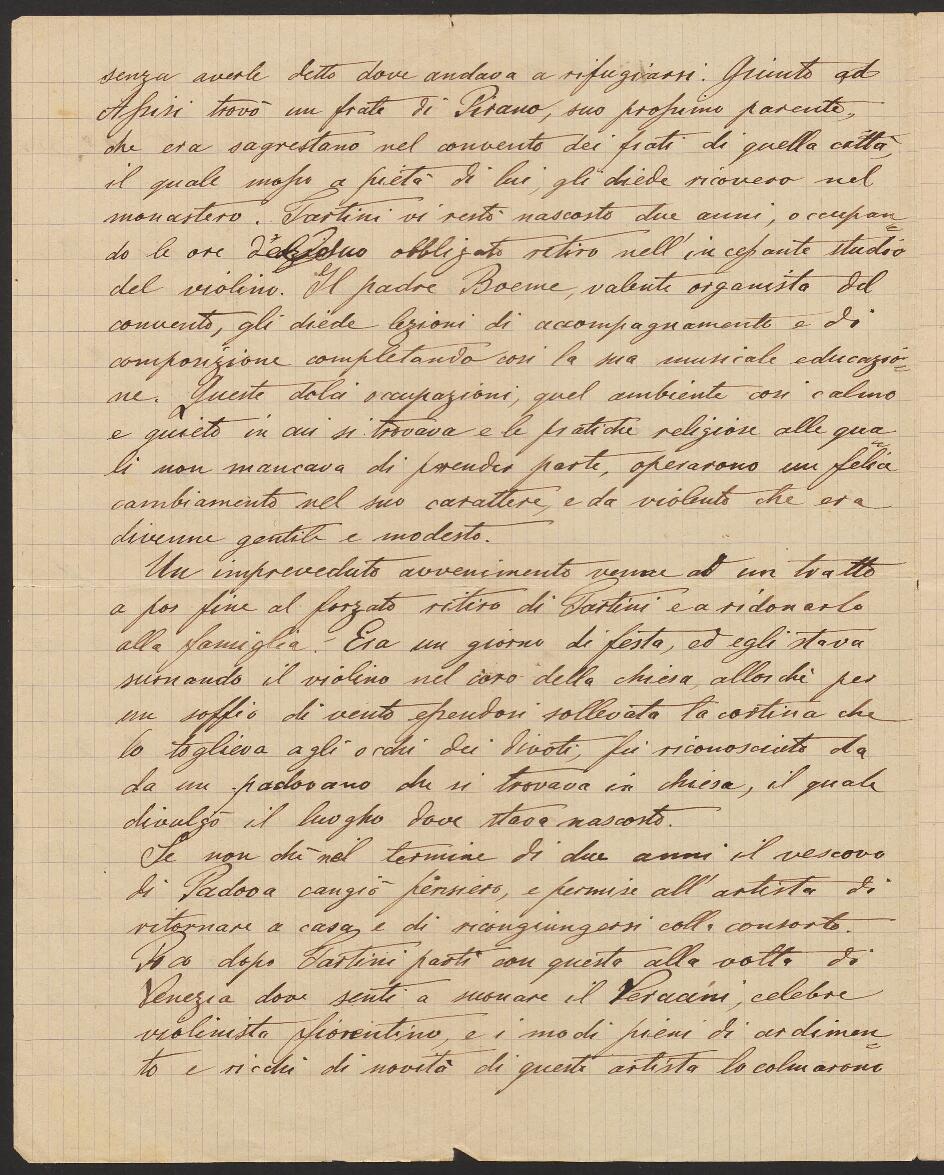 senza averle detto dove andava a rifugiarsi. Giunto ad
Assisi trovò un frate di Pirano, suo prossimo parente,
che era sagrestano nel convento dei frati di quella città,
il quale mosso a pietà di lui, gli diede ricovero nel
monastero. Tartini vi restò nascosto due anni, occupan=
do le ore obbligato retiro nell'incessante studio
del violino. Il padre Boeme, valente organista del
convento, gli diede lezioni di accompagnamento e di
composizione completando così la sua musicale educazio=
ne. Queste dolci occupazioni, quel ambiente così calmo
e quieto in cui si trovava e le pratiche religiose alle qua=
li non mancava di prender parte, operarono un felice
cambiamento nel suo carattere, e da violento che era
divenne gentile e modesto.
Un impreveduto avvenimento venne ad un tratto
a por fine al forzato ritiro di Tartini e a ridonarlo
alla famiglia. Era un giorno di festa, ed egli stava
suonando il violino nel coro della chiesa, allorchè per
un soffio di vento essendosi sollevata la cortina che
lo toglieva agli occhi dei divoti, fu riconosciuto da
da un padovano che si trovava in chiesa, il quale
divulgò il luogho dove stava nascosto.
Se non chè nel termine di due anni il vescovo
di Padova cangiò pensiero, e permise all'artista di
ritornare a casa, e di ricongiungersi colla consorte.
Poco dopo Tartini partì con questa alla volta di
Venezia dove sentì a suonare il Veracini, celebre
violinista fiorentino, e i modi pieni di ardimen=
to e ricchi di novità di questi artista lo colmarono